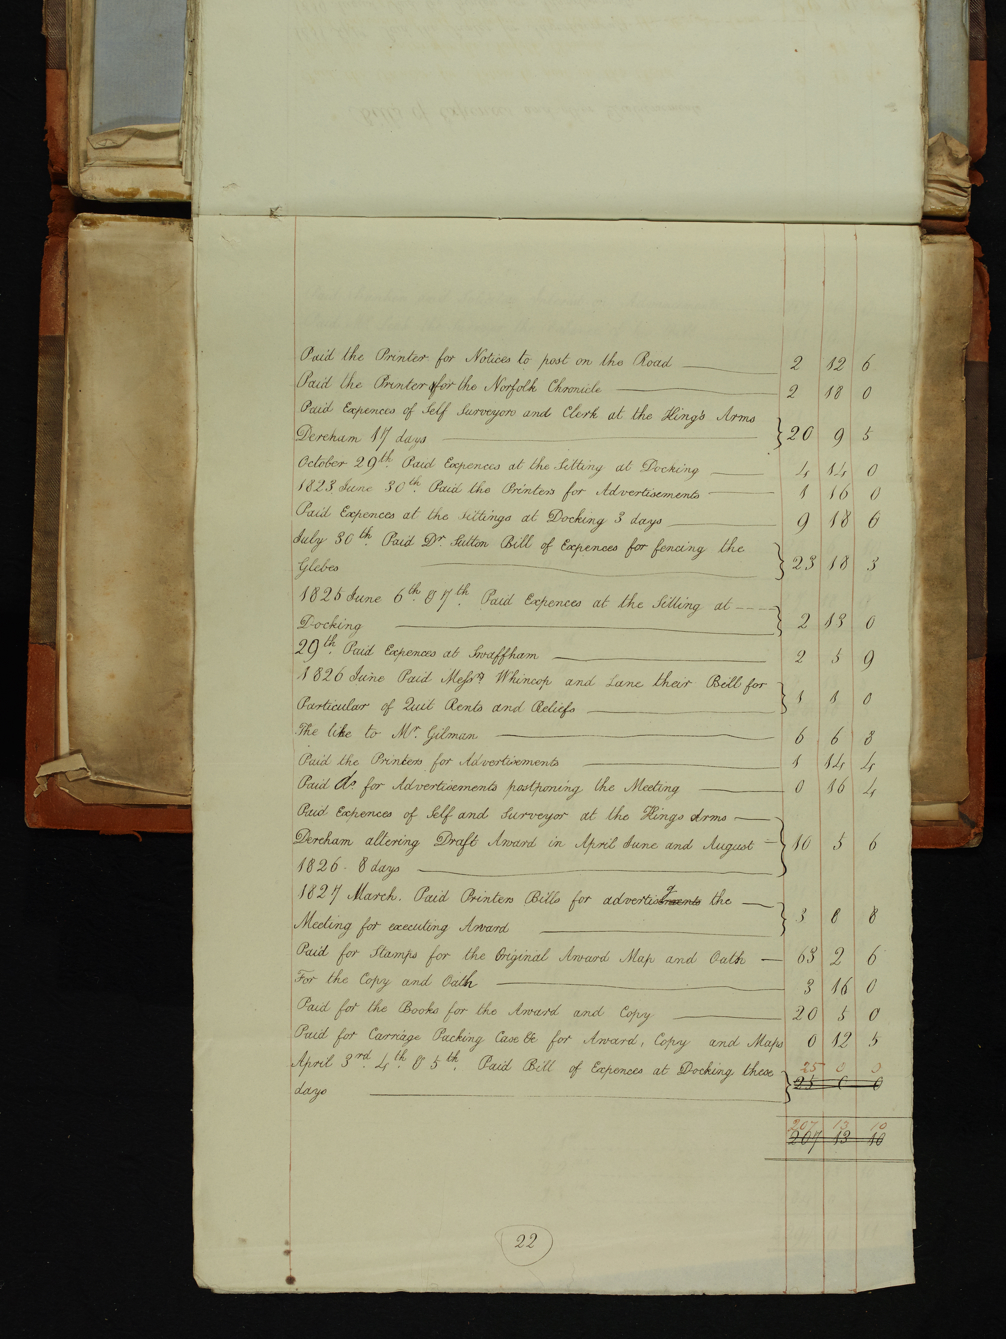 Paid the Printer for Notices to post on the Road 2 12 6
Paid the Printer for the Norfolk Chronicle 2 18 0
Paid Expences of Self Surveyors and Clerk at the King's Arms
Dereham 17 days 20 9 5
October 29th Paid Expences at the Sitting at Docking 4 14 0
1823 June 30th Paid the Printers for Advertisements 1 16 0
Paid Expences at the Sittings at Docking 3 days 9 18 6
July 30th Paid Dr. Sutton Bill of Expences for fencing the
Glebes 23 18 3
1825 June 6th & 7th Paid Expences at the Sitting at
Docking 2 13 0
29th Paid Expences at Swaffham 2 5 9
1826 June Paid Messrs Whincop and Lane their Bill for
Particular of Quit Rents and Reliefs 1 1 0
The like to Mr. Gilman 6 6 8
Paid the Printers for Advertisements 1 14 4
Paid Do for Advertisements postponing the Meeting 0 16 4
Paid Expences of Self and Surveyor at the Kings Arms
Dereham altering Draft Award in April June and August 10 5 6
1826 - 8 days
1827 March. Paid Printers Bills for advertising the
Meeting for executing Award 3 8 8
Paid for Stamps for the Original Award Map and Oath 63 2 6
For the Copy and Oath 3 16 0
Paid for the Books for the Award and Copy 20 5 0
Paid for Carriage Packing Case &c for Award, Copy and Maps 0 12 5
April 3rd 4th & 5th. Paid Bill of Expences at Docking these 25 0 0
days 25 0 0
207 13 10
207 13 10
22